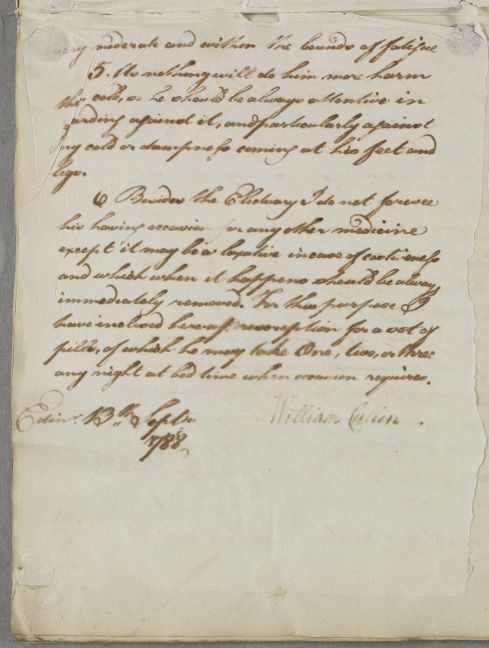 very moderate and within the bounds of fatigue
5. As nothing will do him more harm
than cold, so he should be always attentive in
guarding against it, and particularly against
any cold or dampness coming at his feet and
legs.
6 Besides the Electuary I do not foresee
his having occasion for any other medicine
except it may be a laxative in case of costiveness
and which when it happens should be always
immediately removed. For this purpose I
have inclosed here a prescription for a sort of
pills, of which he may take One, two, or three
any night at bed time when occasion requires.
Edinr. 13th Septr.
1788
William Cullen.